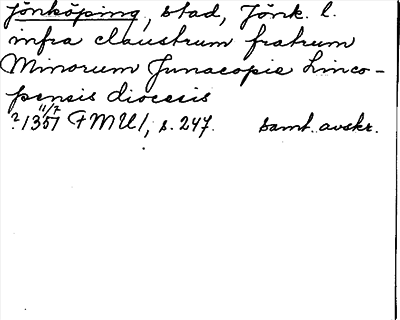 Jönköping, stad, Jönk. l.
infra claustrum fratrum
Minorum Junacopie Linco-
pensis diocesis
11/7
? 1357 FMU 1, s. 247. samt. avskr.